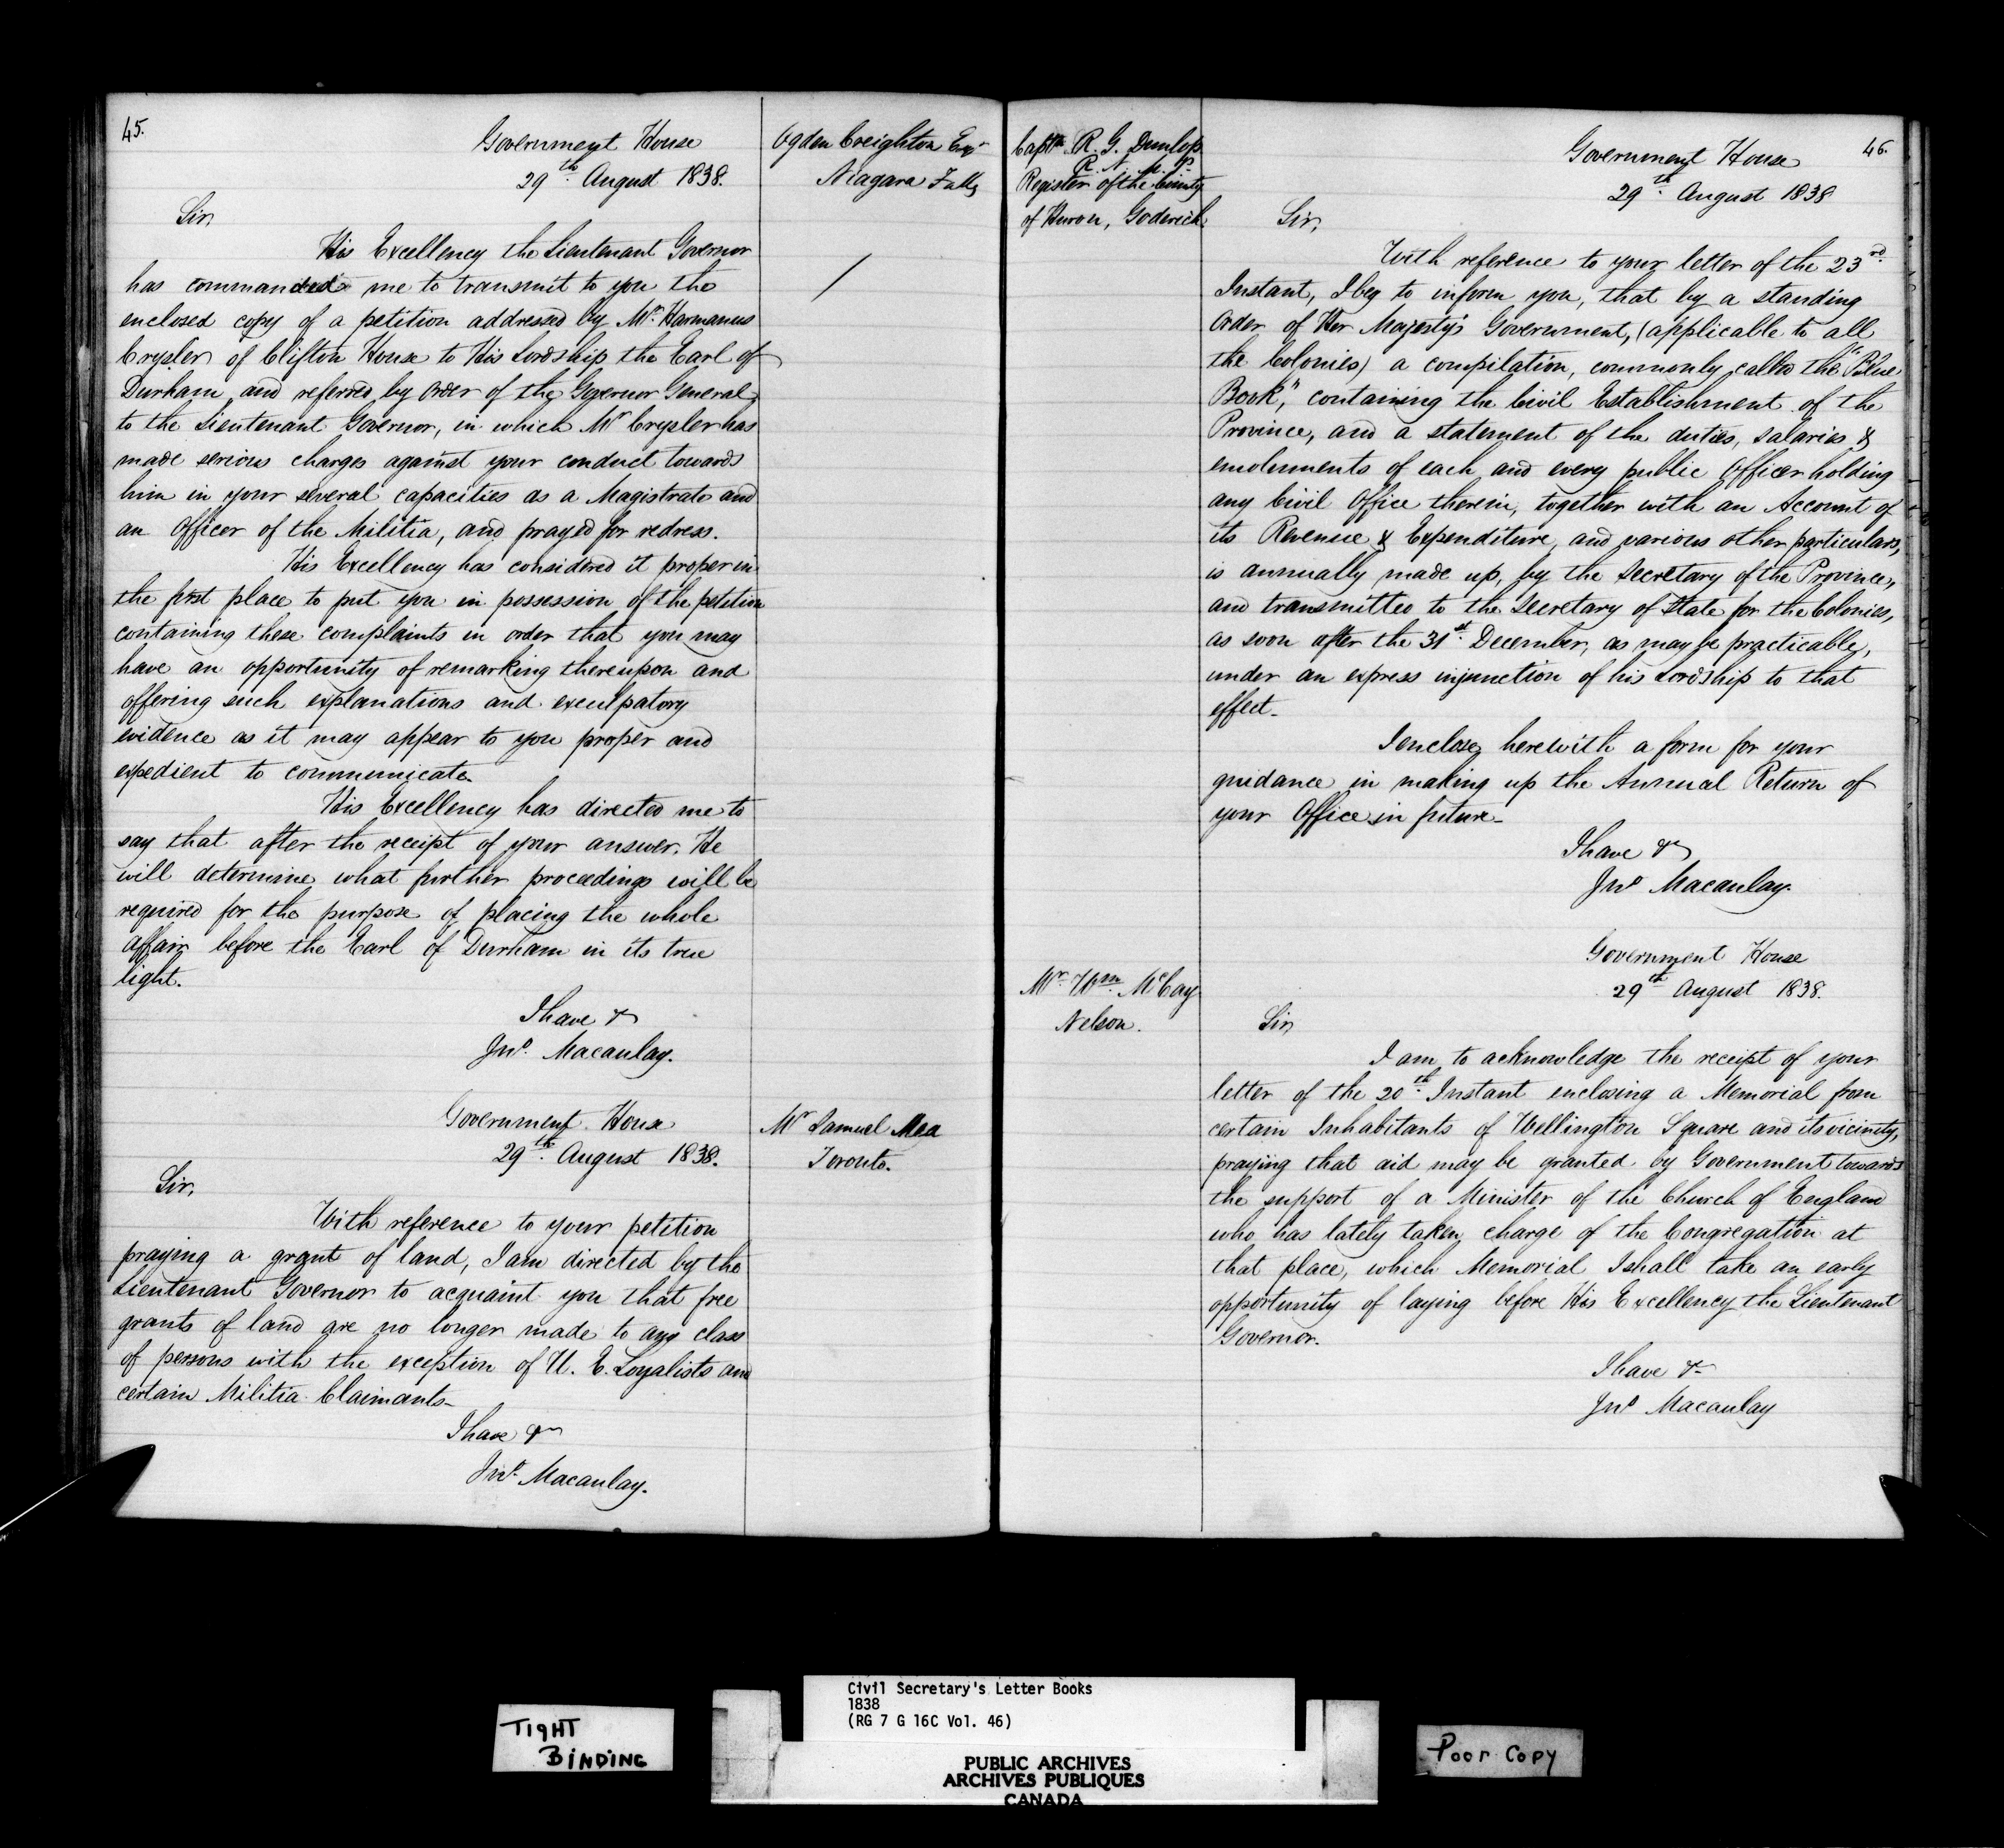 45.
Government House
29th. August 1838.
Ogden Creighton Esqr
Niagara Falls
Sir,
His Excellency the Lieutenant Governor
has commanded me to transmit to you the
enclosed copy of a petition addressed by Mr. Harmanus
Crysler of Clifton House to His Lordship the Earl of
Durham, and referred by order of the Governor General,
to the Lieutenant Governor, in which Mr Crysler has
made serious charges against your conduct towards
him in your several capacities as a Magistrate and
an Officer of the Militia, and prayed for redress.
His Excellency has considered it proper in
the first place to put you in possession of the petition
containing these complaints in order that you may
have an opportunity of remarking thereupon and
offering such explanations and exculpatory
evidence as it may appear to you proper and
expedient to communicate.
His Excellency has directed me to
say that after the receipt of your answer, He
will determine what further proceedings will be
required for the purpose of placing the whole
affair before the Earl of Durham in its true
light.
I have &
Jno. Macaulay.
Government House
29th. August 1838.
Mr Samuel Mea
Toronto.
Sir,
With reference to your petition
praying a grant of land, I am directed by the
Lieutenant Governor to acquaint you that free
grants of land are no longer made to any class
of persons with the exception of U. E. Loyalists and
certain Militia Claimants_
I have &
Jno. Macaulay.
46.
Captn R. G. Dunlop
R. N. M. P.
Register of the County
of Huron, Goderich.
Government House
29th. August 1838
Sir,
With reference to your letter of the 23rd.
Instant, I beg to inform you, that by a standing
Order of Her Majesty's Government, (applicable to all
the Colonies) a compilation, commonly called the "Blue
Book", containing the Civil Establishment of the
Province, and a statement of the duties, salaries &
emoluments of each and every public Officer holding
any Civil Office therein, together with an Account of
its Revenue & Expenditure, and various other particulars,
is annually made up, by the Secretary of the Province,
and transmitted to the Secretary of State for the Colonies,
as soon after the 31st. December, as may be practicable,
under an express injunction of his Lordship to that
effect_
I enclose herewith a form for your
guidance in making up the Annual Return of
your Office in future_
I have &
Jno Macaulay.
Mr. Wm. McCay
Nelson.
Government House
29th August 1838.
Sir
I am to acknowledge the receipt of your
letter of the 20th. Instant enclosing a Memorial from
certain Inhabitants of Wellington Square and its vicinity,
praying that aid may be granted by Government towards
the support of a Minister of the Church of England
who has lately taken charge of the Congregation at
that place, which Memorial I shall take an early
opportunity of laying before His Excellency the Lieutenant
Governor.
I have &
Jno Macaulay
TIGHT
BINDING
Civil Secretary's Letter Books
1838
(RG 7 G 16C Vol. 46)
PUBLIC ARCHIVES
ARCHIVES PUBLIQUES
CANADA
Poor Copy